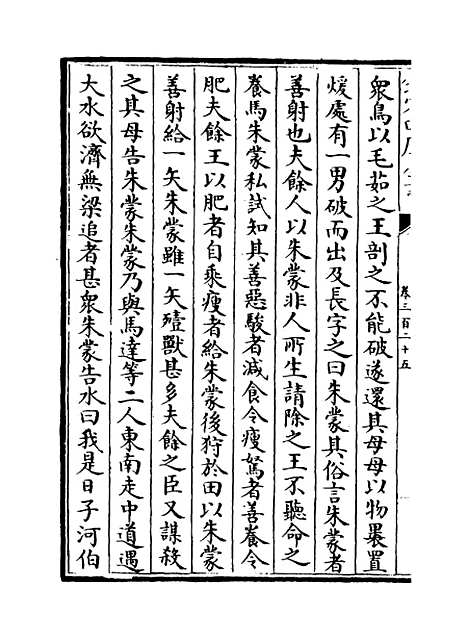 卷三百二十五
衆鳥以毛茹之王剖之不能破遂還其母母以物褁置
煖處有一男破而出及長字之曰朱蒙其俗言朱蒙者
善射也夫餘人以朱蒙非人所生請除之王不聽命之
養馬朱蒙私試知其善惡駿者減食令瘦駑者善養令
肥夫餘王以肥者自乘瘦者給朱蒙後狩於田以朱蒙
善射給一矢朱蒙雖一矢殪獸甚多夫餘之臣又謀殺
之其母告朱蒙朱蒙乃與馬達等二人東南走中道遇
大水欲濟無梁追者甚衆朱蒙告水曰我是日子河伯